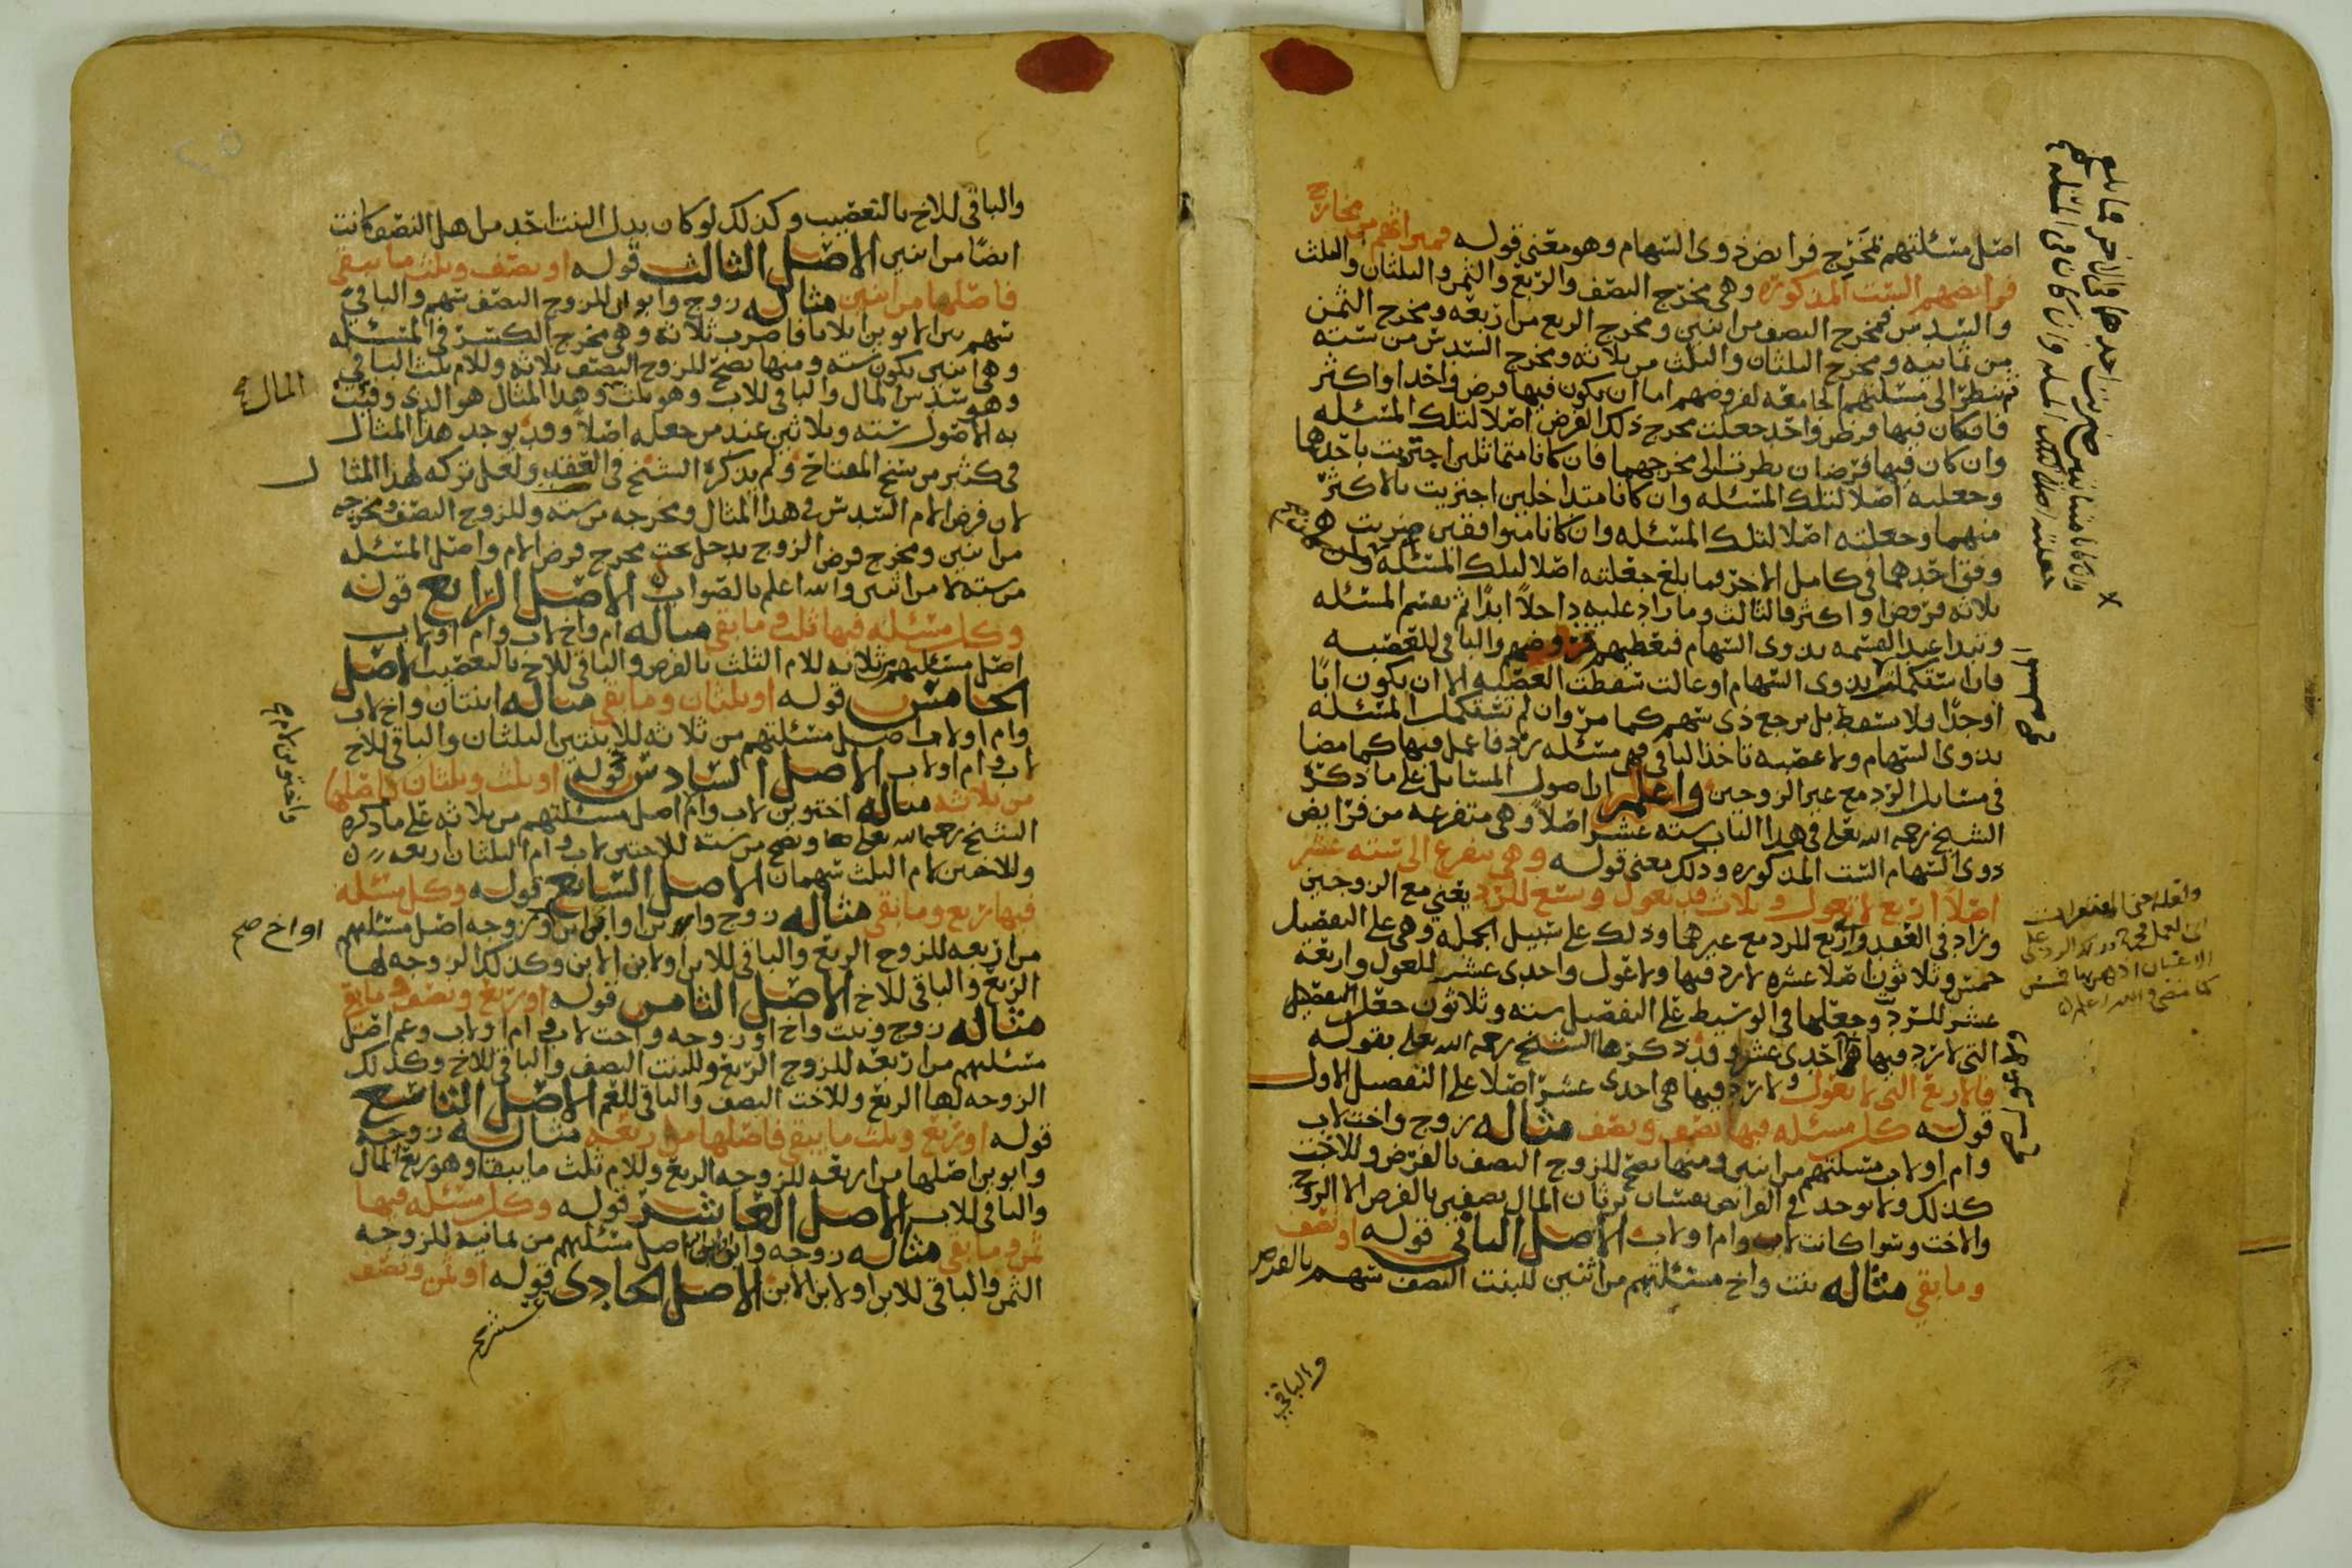 اصل مسئلتهم مخرج فرايض ذوى السهام وهو معنى قوله فميراثهم من مخارج
فرايضهم الست المذكورة وهى مخرج النصف والربع والثمن والثلثان والثلث
والسدس فمخرج النصف من اثنين ومخرج الربع من اربعه ومخرج الثمن
من ثمانيه ومخرج الثلثان والثلث من ثلاثه ومخرج السدس من سته
ثم تنظر الى مسئلتهم الجامعه لفروضهم اما ان يكون فيها فرض واحدا او اكثر
فان كان فيها فرض واحد جعلت مخرج ذلك الفرض اصلا لتلك المسئله
وان كان فيها فرضان نظرت الى مخرجهما فان كانا متماثلين اجتزيت باحدها
وجعلته اصلا لتلك المسئله وان كانا متداخلين اجتزيت بالاكثر
منهما وجعلته اصلا لتلك المسئله وان كانا متوافقين ضربت
وفق احدهما فى كامل الاخر فما بلغ جعلته اصلا لتلك المسئله وان كان فيها
ثلاثه فروض او اكثر فالثالث وما زاد عليه داخلا ابدا ثم تقسم المسئله
وتبدا عند القسمه بذوى السهام فتعطيهم فروضهم والباقى للعصبه
فان استكملت بذوى السهام او عالت سقطت العصبه الا ان يكون ابا
او جدا فلا يسقط بل يرجع ذى سهم كما مر وان لم تستكمل المسئله
بذوى السهام ولا عصبه تاخذ الباقى فهى مسئله رد فاعمل فيها كما مضا
فى مسايل الرد مع غير الزوجين واعلم ان اصول المسايل على ما ذكر
الشيخ رحمه الله تعلى فى هذا الباب سته عشر اصلا وهى متفرعه من فرايض
ذوى السهام الست المذكوره وذلك معنى قوله وهى تتفرع الى سته عشر
اصلا اربع لا تعول وثلاث قد تعول وسبع للرد يعنى مع الزوجين
وزاد فى العقد واربع للرد مع غيرهما وذلك على سبيل الجمله وهى على التفصيل
خمس وثلاثون اصلا عشره لا رد فيها ولا عول واحدى عشر للعول واربعة
عشر للرد وجعلها فى الوسيط على التفصيل سته وثلاثون جعل التفصيل
التى لا رد فيها احدى عشر وقد ذكرها الشيخ رحمه الله تعلى بقوله
فالاربع التى لا تعول ولا رد فيها هى احدى عشر اصلا على التفصيل الاول
قوله كل مسئله فيها نصف ونصف مثاله زوج واخت لاب
وام او لاب مسئلتهم من اثنين ومنها تصح للزوج النصف بالفرض وللاخت
كذلك ولا يوجد فى الفرايض نفسان يرثان المال نصفين بالفرض الا الزوج
والاخت وسوا كانت لاب وام او لاب الاصل الثانى قوله او نصف
وما بقى مثاله بنت واخ مسئلتهم من اثنين للبنت النصف سهم بالفرض
والباقى
وان كانا متباينين ضربت احدها فى الاخر فما بلغ
جعلته اصلا لتلك المسئله
والباقى للاخ بالتعصيب وكذلك لو كان بدل البنت احد من اهل النصف كانت
ايضا من اثنين الاصل الثالث قوله او نصف وثلث ما يبقى
فاصلها من اثنين مثاله زوج وابوان للزوج النصف سهم والباقى
سهم بين الابوين اثلاثا فاضرب ثلاثه وهى مخرج الكسر فى المسئله
وهى اثنين يكون سته ومنها تصح للزوج النصف ثلاثه وللام ثلث الباقى
وهو سدس المال والباقى للاب وهو ثلث وهذا المثال هو الذى وفيت
المال
به الاصول سته وثلاثين عند من جعله اصلا وقد يوجد هذا المثال
فى كثير من نسخ المفتاح ولم يذكره الشيخ فى العقد ولعل تركه لهذا المثال
لان فرض الام السدس فى هذا المثال ومخرجه من سته وللزوج النصف ومخرجه
من اثنين ومخرج فرض الزوج يدخل تحت مخرج فرض الام واصل المسئله
من سته لا من اثنين والله اعلم بالصواب الاصل الرابع قوله
وكل مسئله فيها ثلث وما بقى مثاله ام واخ لاب وام او لاب
اصل مسئلتهم من ثلاثه للام الثلث بالفرض والباقى للاخ بالتعصيب الاصل
الخامس قوله او ثلثان وما بقى مثاله ابنتان واخ لاب
وام او لاب اصل مسئلتهم من ثلاثه للابنتين الثلثان والباقى للاخ
لاب وام او لاب الاصل السادس قوله او ثلث وثلثان فاصلها
من ثلاثه مثاله اختين لاب وام اصل مسئلتهم من ثلاثه على ما ذكره
واختين لام
الشيخ رحمه الله تعلى ها وتصح من سته للاختين لاب وام الثلثان اربعه
وللاختين لام الثلث سهمان الاصل السابع قوله وكل مسئله
فيها ربع وما بقى مثاله زوج وابن او ابن ابن او زوجه اصل مسئلتهم
او اخ صح
من اربعه للزوج الربع والباقى للابن او لابن الابن وكذلك الزوجه لها
الربع والباقى للاخ الاصل الثامن قوله او ربع ونصف وما بقى
مثاله زوج وبنت واخ او زوجه واخت لاب وام او لاب وعم اصل
مسئلتهم من اربعه للزوج الربع وللبنت النصف والباقى للاخ وكذلك
الزوجه لها الربع وللاخت النصف والباقى للعم الاصل التاسع
قوله او ربع وثلث ما يبقى فاصلها من اربعه مثاله زوجه
وابوين اصلها من اربعه للزوجه الربع وللام ثلث ما يبقا وهو ربع المال
والباقى للاب الاصل العاشر قوله وكل مسئله فيها
ثمن وما بقى مثاله زوجه وابن اصل مسئلتهم من ثمانيه للزوجه
الثمن والباقى للابن او لابن الابن الاصل الحادى عشر قوله او ثمن ونصف